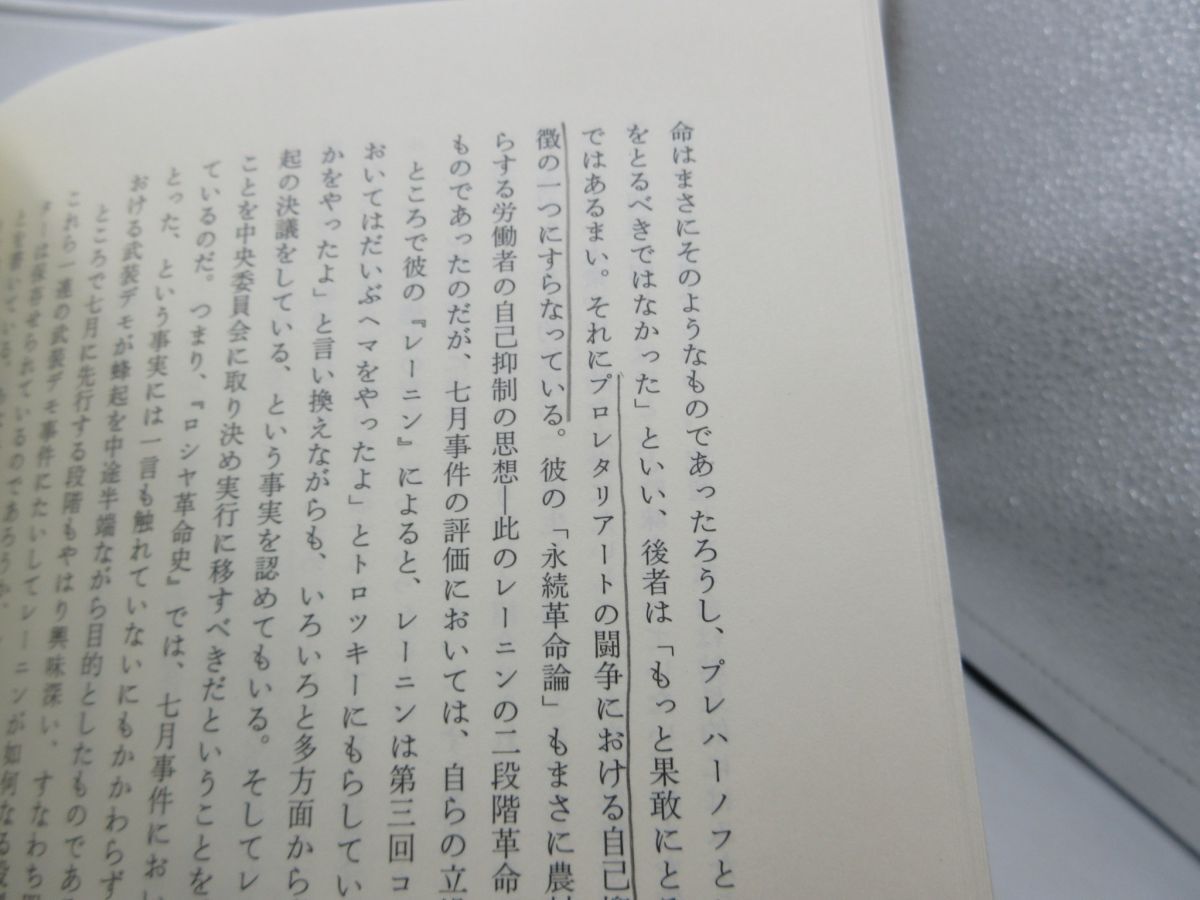 命はまさにそのようなものであったろうし、プレハーノフと
をとるべきではなかった」といい、後者は「もっと果敢にとる
ではあるまい。それにプロレタリアートの闘争における自己
徴の一つにすらなっている。彼の「永続革命論」もまさに農村
らする労働者の自己抑制の思想―此のレーニンの二段階革命
ものであったのだが、七月事件の評価においては、自らの立場
ところで彼の『レーニン』によると、レーニンは第三回コ
おいてはだいぶヘマをやったよ」とトロツキーにもらしてい
かをやったよ」と言い換えながらも、いろいろと多方面から
起の決議をしている、という事実を認めてもいる。そしてレ
ことを中央委員会に取り決め実行に移すべきだということを
ているのだ。つまり、『ロシヤ革命史』では、七月事件におい
とった、という事実には一言も触れていないにもかかわらず
おける武装デモが蜂起を中途半端ながら目的としたものである
ところで七月に先行する段階もやはり興味深い、すなわち
これら一連の武装デモ事件にたいしてレーニンが如何なる
ターは保存せられているのであろうか、